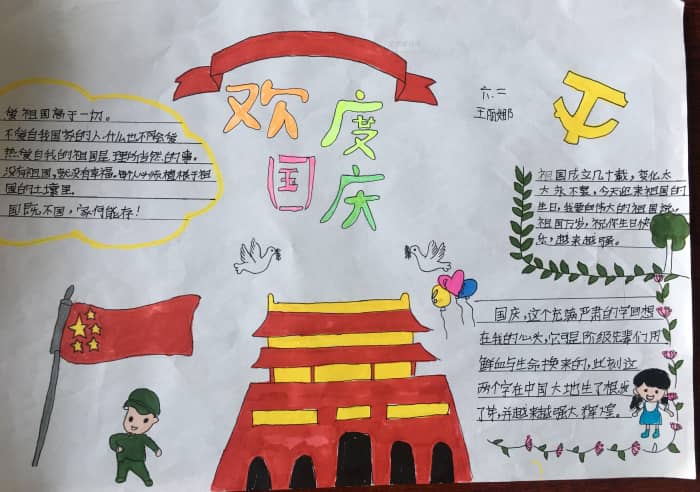 欢度
国庆
六.二
王丽娜
爱祖国高于一切。
不爱自我国家的人,什么也不会爱
热爱自我的祖国是理所当然的事。
没有祖国,就没有幸福。每个人必须植根于祖
国的土壤里。
国既不国,家何能存!
祖国成立几十载,变化太
大东不繁,今天迎来祖国的
生日,我爱自伟大的祖国说。
祖国万岁,祝你生日快
乐,越来越强。
国庆,这个充满严肃的字回想
在我的心头,它可是阶级先辈们用
鲜血与生命换来的,此刻这
两个字在中国大地生了根发
了芽,并越来越强大辉煌。